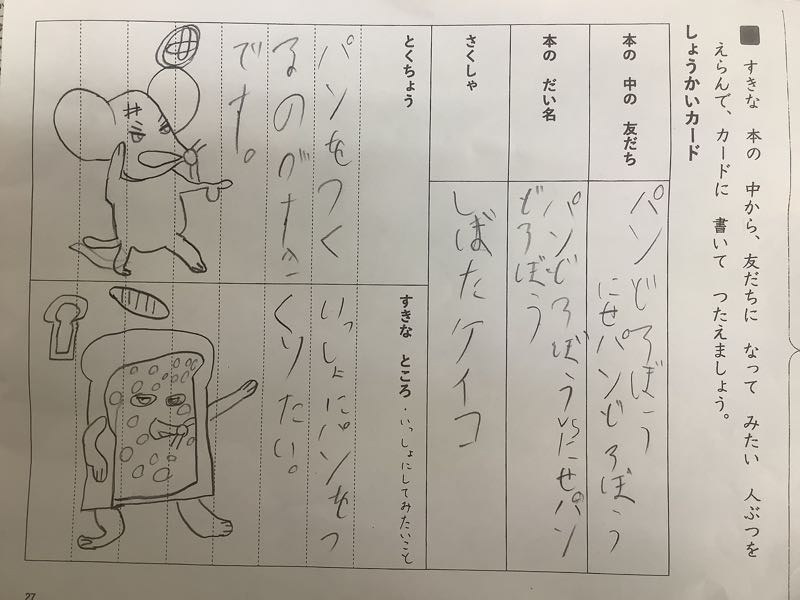 ■ すきな 本の 中から、友だちに なって みたい 人ぶつを
えらんで、カードに 書いて つたえましょう。
しょうかいカード
本の 中の 友だち
パンどろぼう
にせパンどろぼう
本の だい名
パンどろぼうvsにせパン
どろぼう
さくしゃ
しばたケイコ
とくちょう
パンをつく
るのがすき
です。
すきな ところ・いっしょにしてみたいこと
いっしょにパンをつ
くりたい。
27